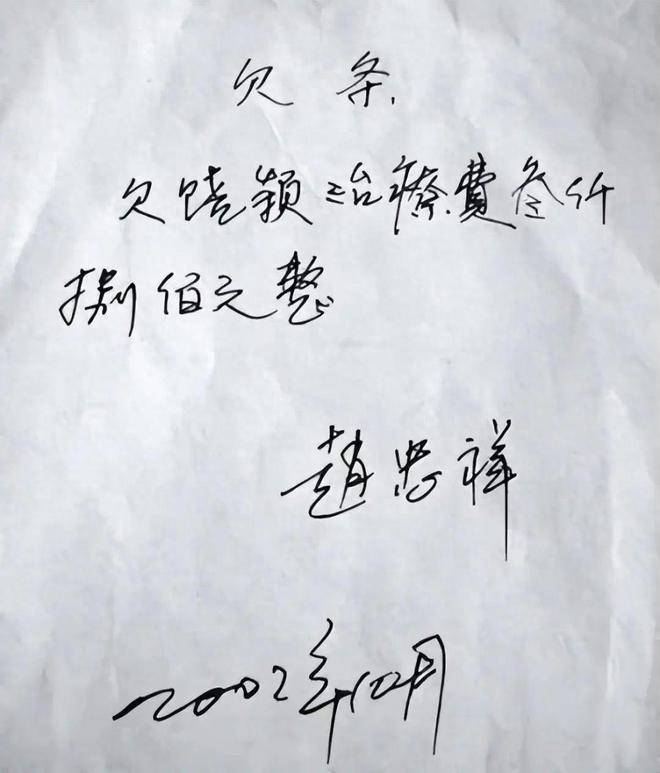 欠条
欠饶颖治療費叁仟
捌佰元整
趙忠祥
2002年12月